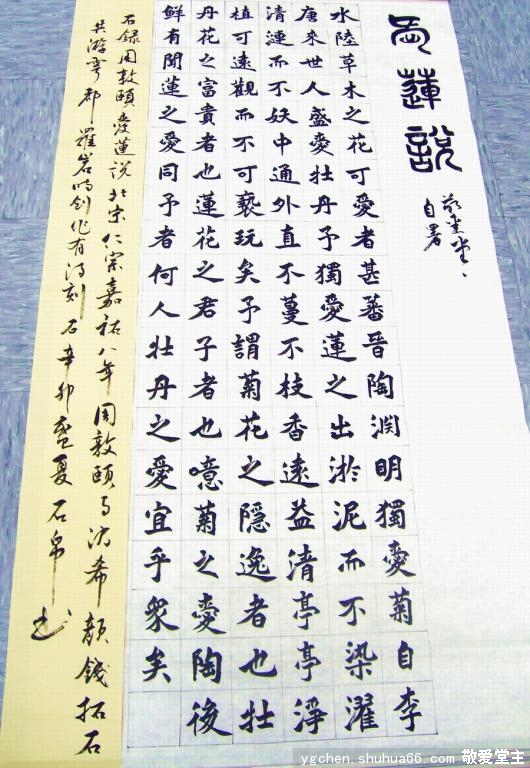 愛蓮說
自署
水陸草木之花可愛者甚蕃晉陶渊明獨愛菊自李
唐來世人盛愛牡丹予獨愛蓮之出淤泥而不染濯
清漣而不妖中通外直不蔓不枝香遠益清亭亭淨
植可遠觀而不可褻玩矣予謂菊花之隱逸者也牡
丹花之富貴者也蓮花之君子者也噫菊之愛陶後
鮮有聞蓮之愛同予者何人牡丹之愛宜乎衆矣
石録周敦頤愛蓮説北宗仁宗嘉祐八年周敦頤与沈希顏錢拓石
共游雩都羅岩作有刻石辛卯盛夏石帛书
ygchen.shuhua66.com 敬爱堂主